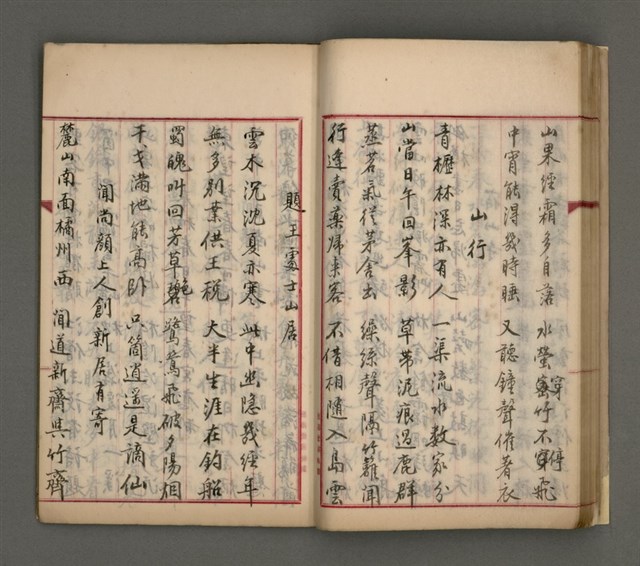 山果經霜多自落　水螢穿竹不停飛
中宵能得幾時睡　又聽鐘聲催著衣
山行
青櫪林深亦有人　一渠流水數家分
山當日午回峯影　草帶泥痕過鹿群
蒸茗氣從茅舍出　繰絲聲隔竹籬聞
行逢賣藥歸來客　不惜相隨入島雲
題王處士山居
雲木沉沈夏亦寒　此中幽隱幾經年
無多別業供王稅　大半生涯在釣船
蜀魄叫回芳草碧　鷺鷥飛破夕陽烟
干戈滿地能高臥　只箇逍遥是謫仙
聞尚顏上人創新居有寄
麓山南面橘州西　聞道新齋與竹齊